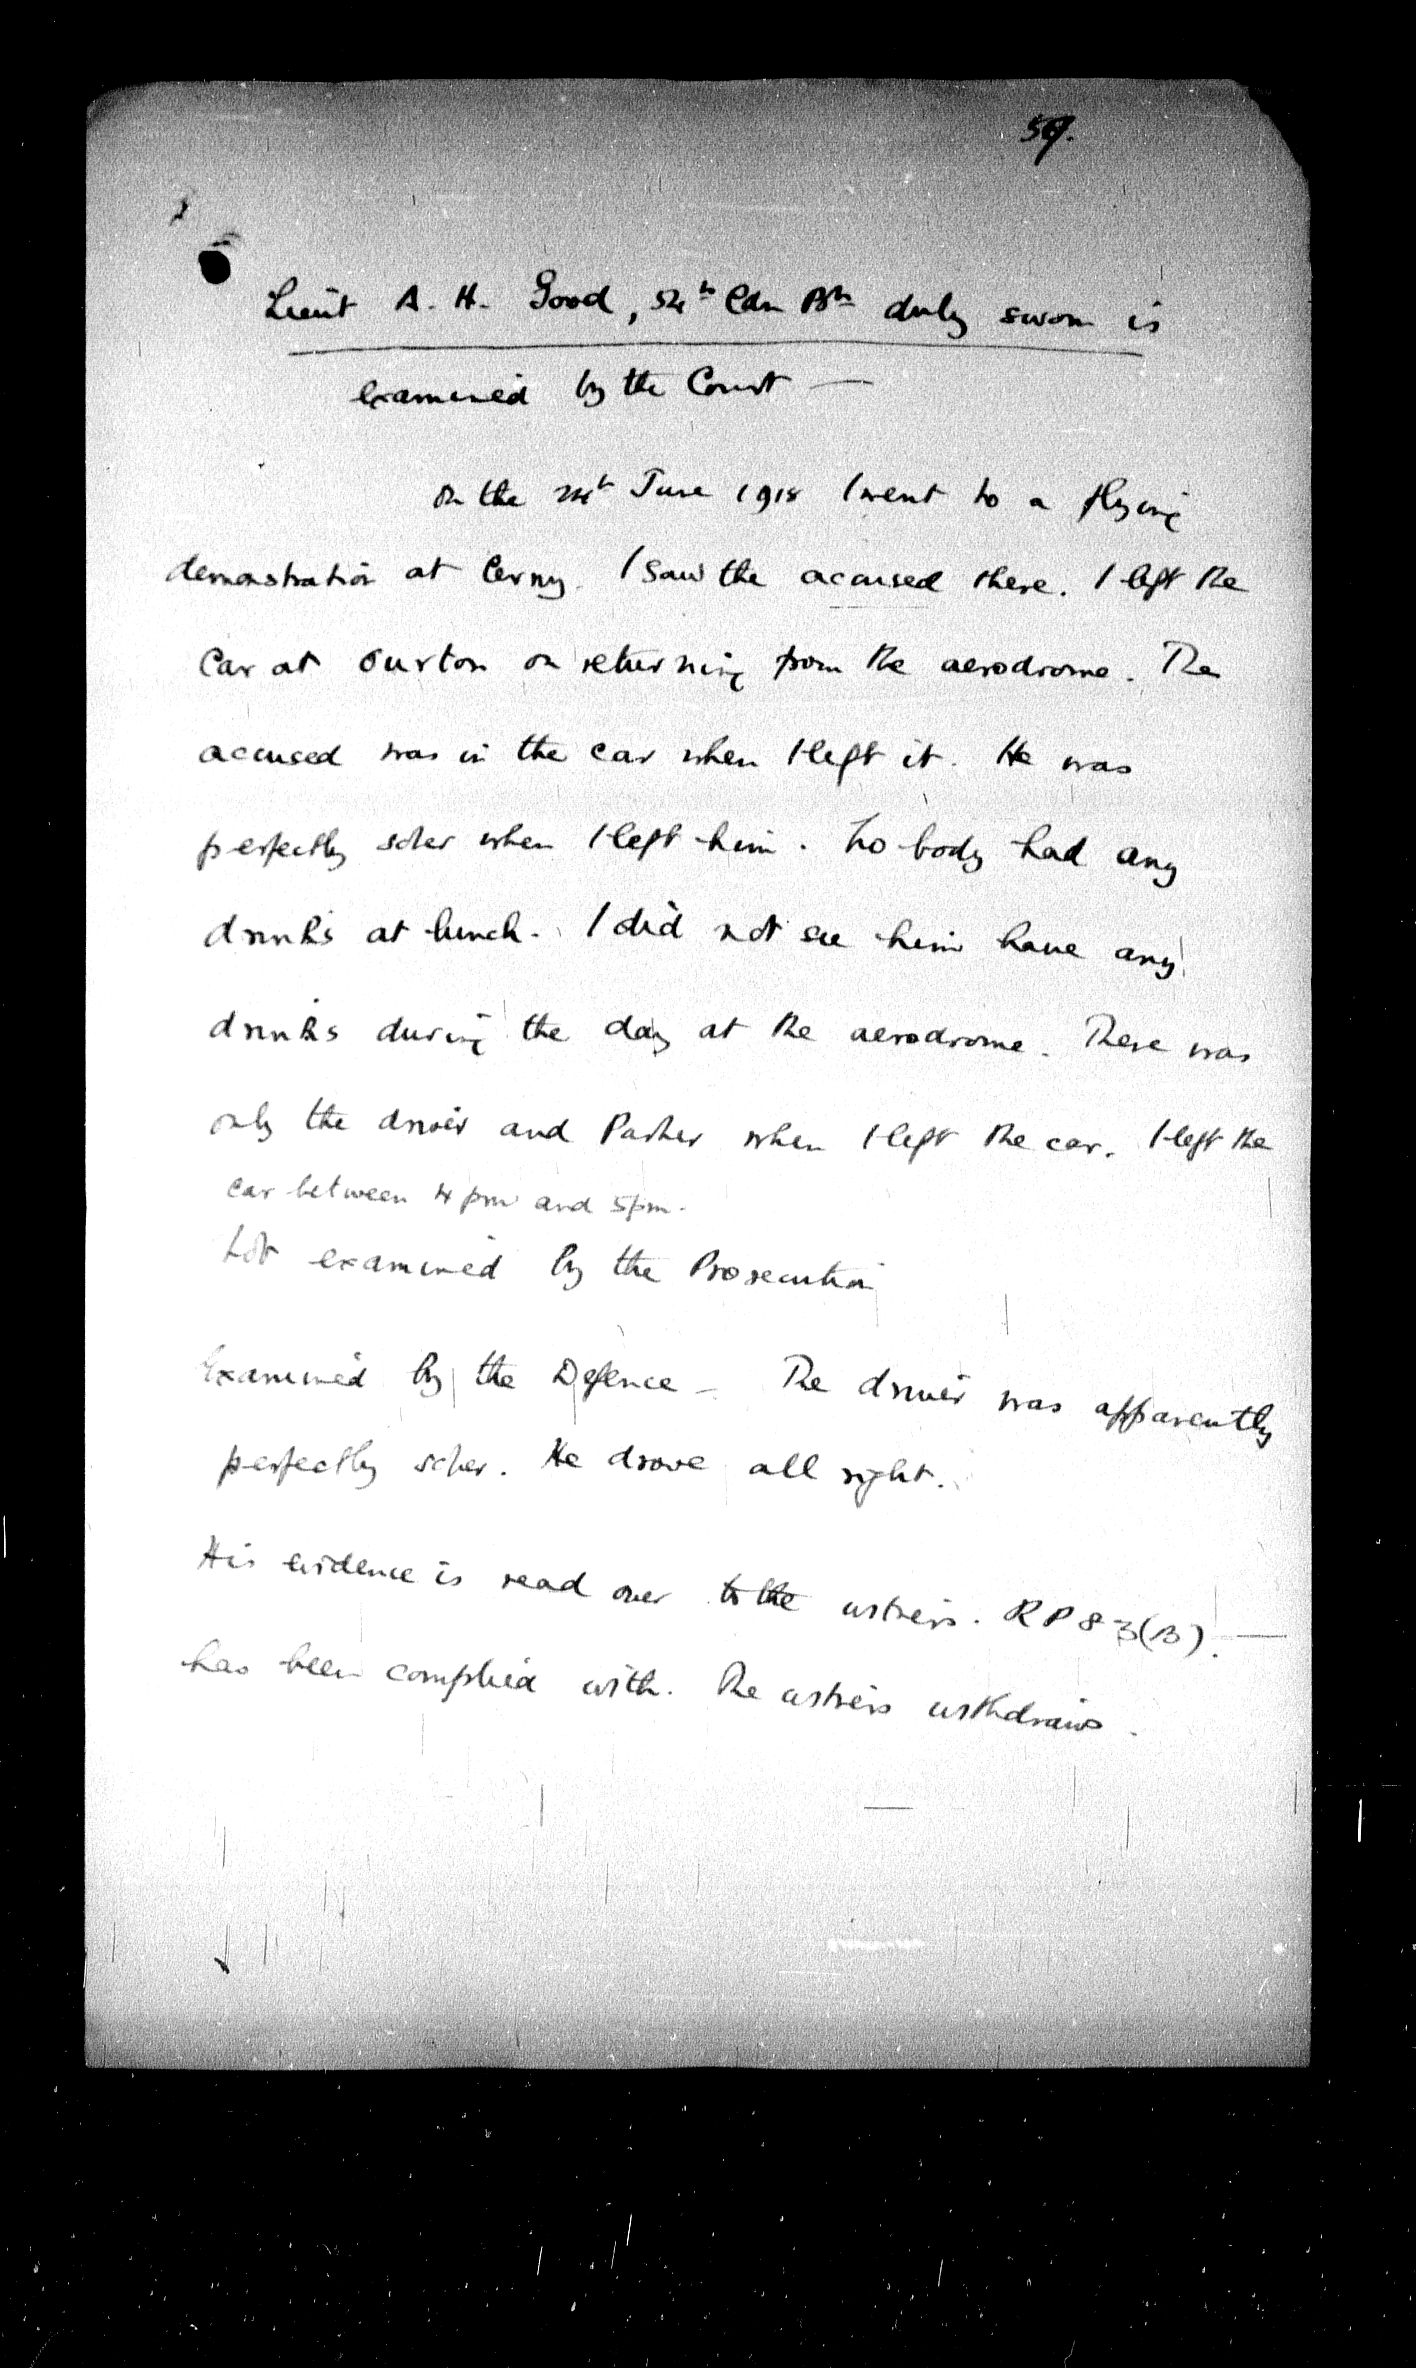 Lieut A. H. Good, 54th Cdn Bn duly sworn is
examined by the Court —
On the 24th June 1918 I went to a flying
demonstration at Cerny. I saw the accused there. I left the
car at Ourton on returning from the aerodrome. The
accused was in the car when I left it. He was
perfectly sober when I left him. No body had any
drinks at lunch. I did not see him have any
drinks during the day at the aerodrome. There was
only the driver and Parker when I left the car. I left the
car between 4 pm and 5 pm.
Not examined by the Prosecution
Examined by the Defence — The driver was apparently
perfectly sober. He drove all right.
His evidence is read over to the witness. RP 83(B). —
has been complied with. The witness withdraws.